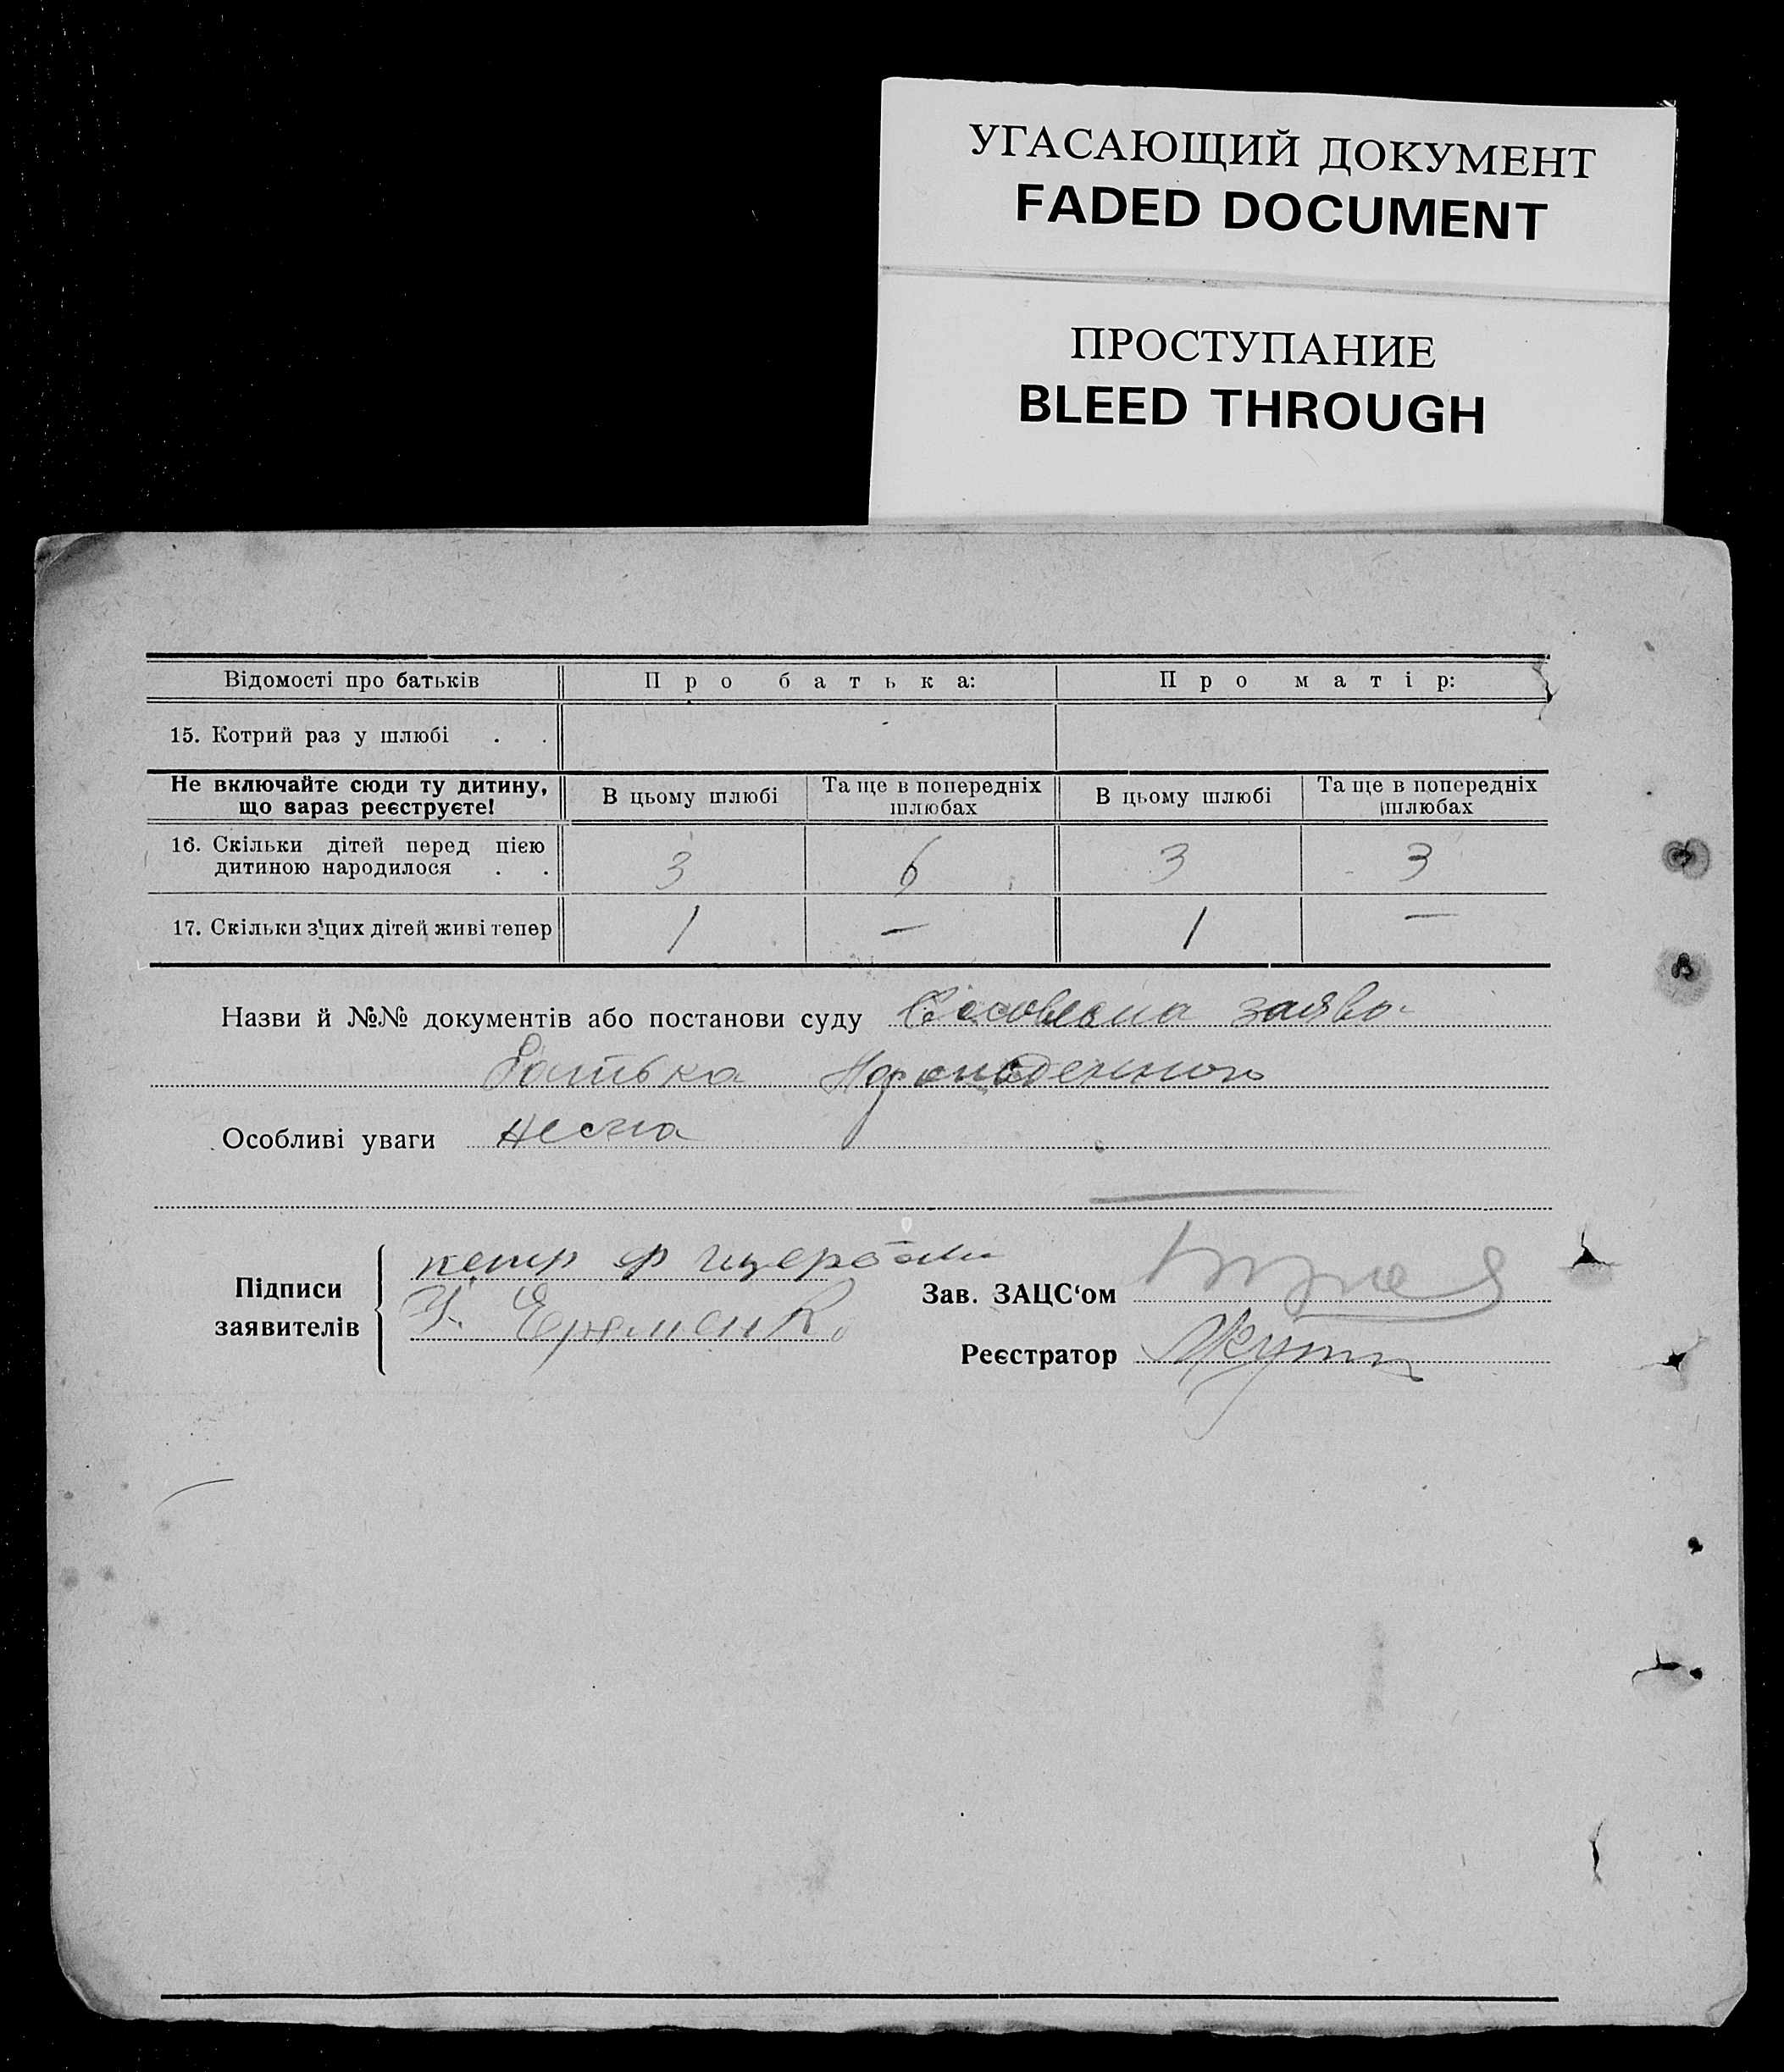 УГАСАЮЩИЙ ДОКУМЕНТ
FADED DOCUMENT
ПРОСТУПАНИЕ
BLEED THROUGH
Відомості про батьків Про батька: Про матір:
15. Котрий раз у шлюбі . .
Не включайте сюди ту дитину, що зараз реєструєте! В цьому шлюбі Та ще в попередніх шлюбах В цьому шлюбі Та ще в попередніх шлюбах
16. Скільки дітей перед цією дитиною народилося . . 3 6 3 3
17. Скільки з цих дітей живі тепер 1 — 1 —
Назви й №№ документів або постанови суду Словесна заява
батька
Особливі уваги нема
Підписи заявителів
Єременко
Зав. ЗАЦС‘ом
Реєстратор